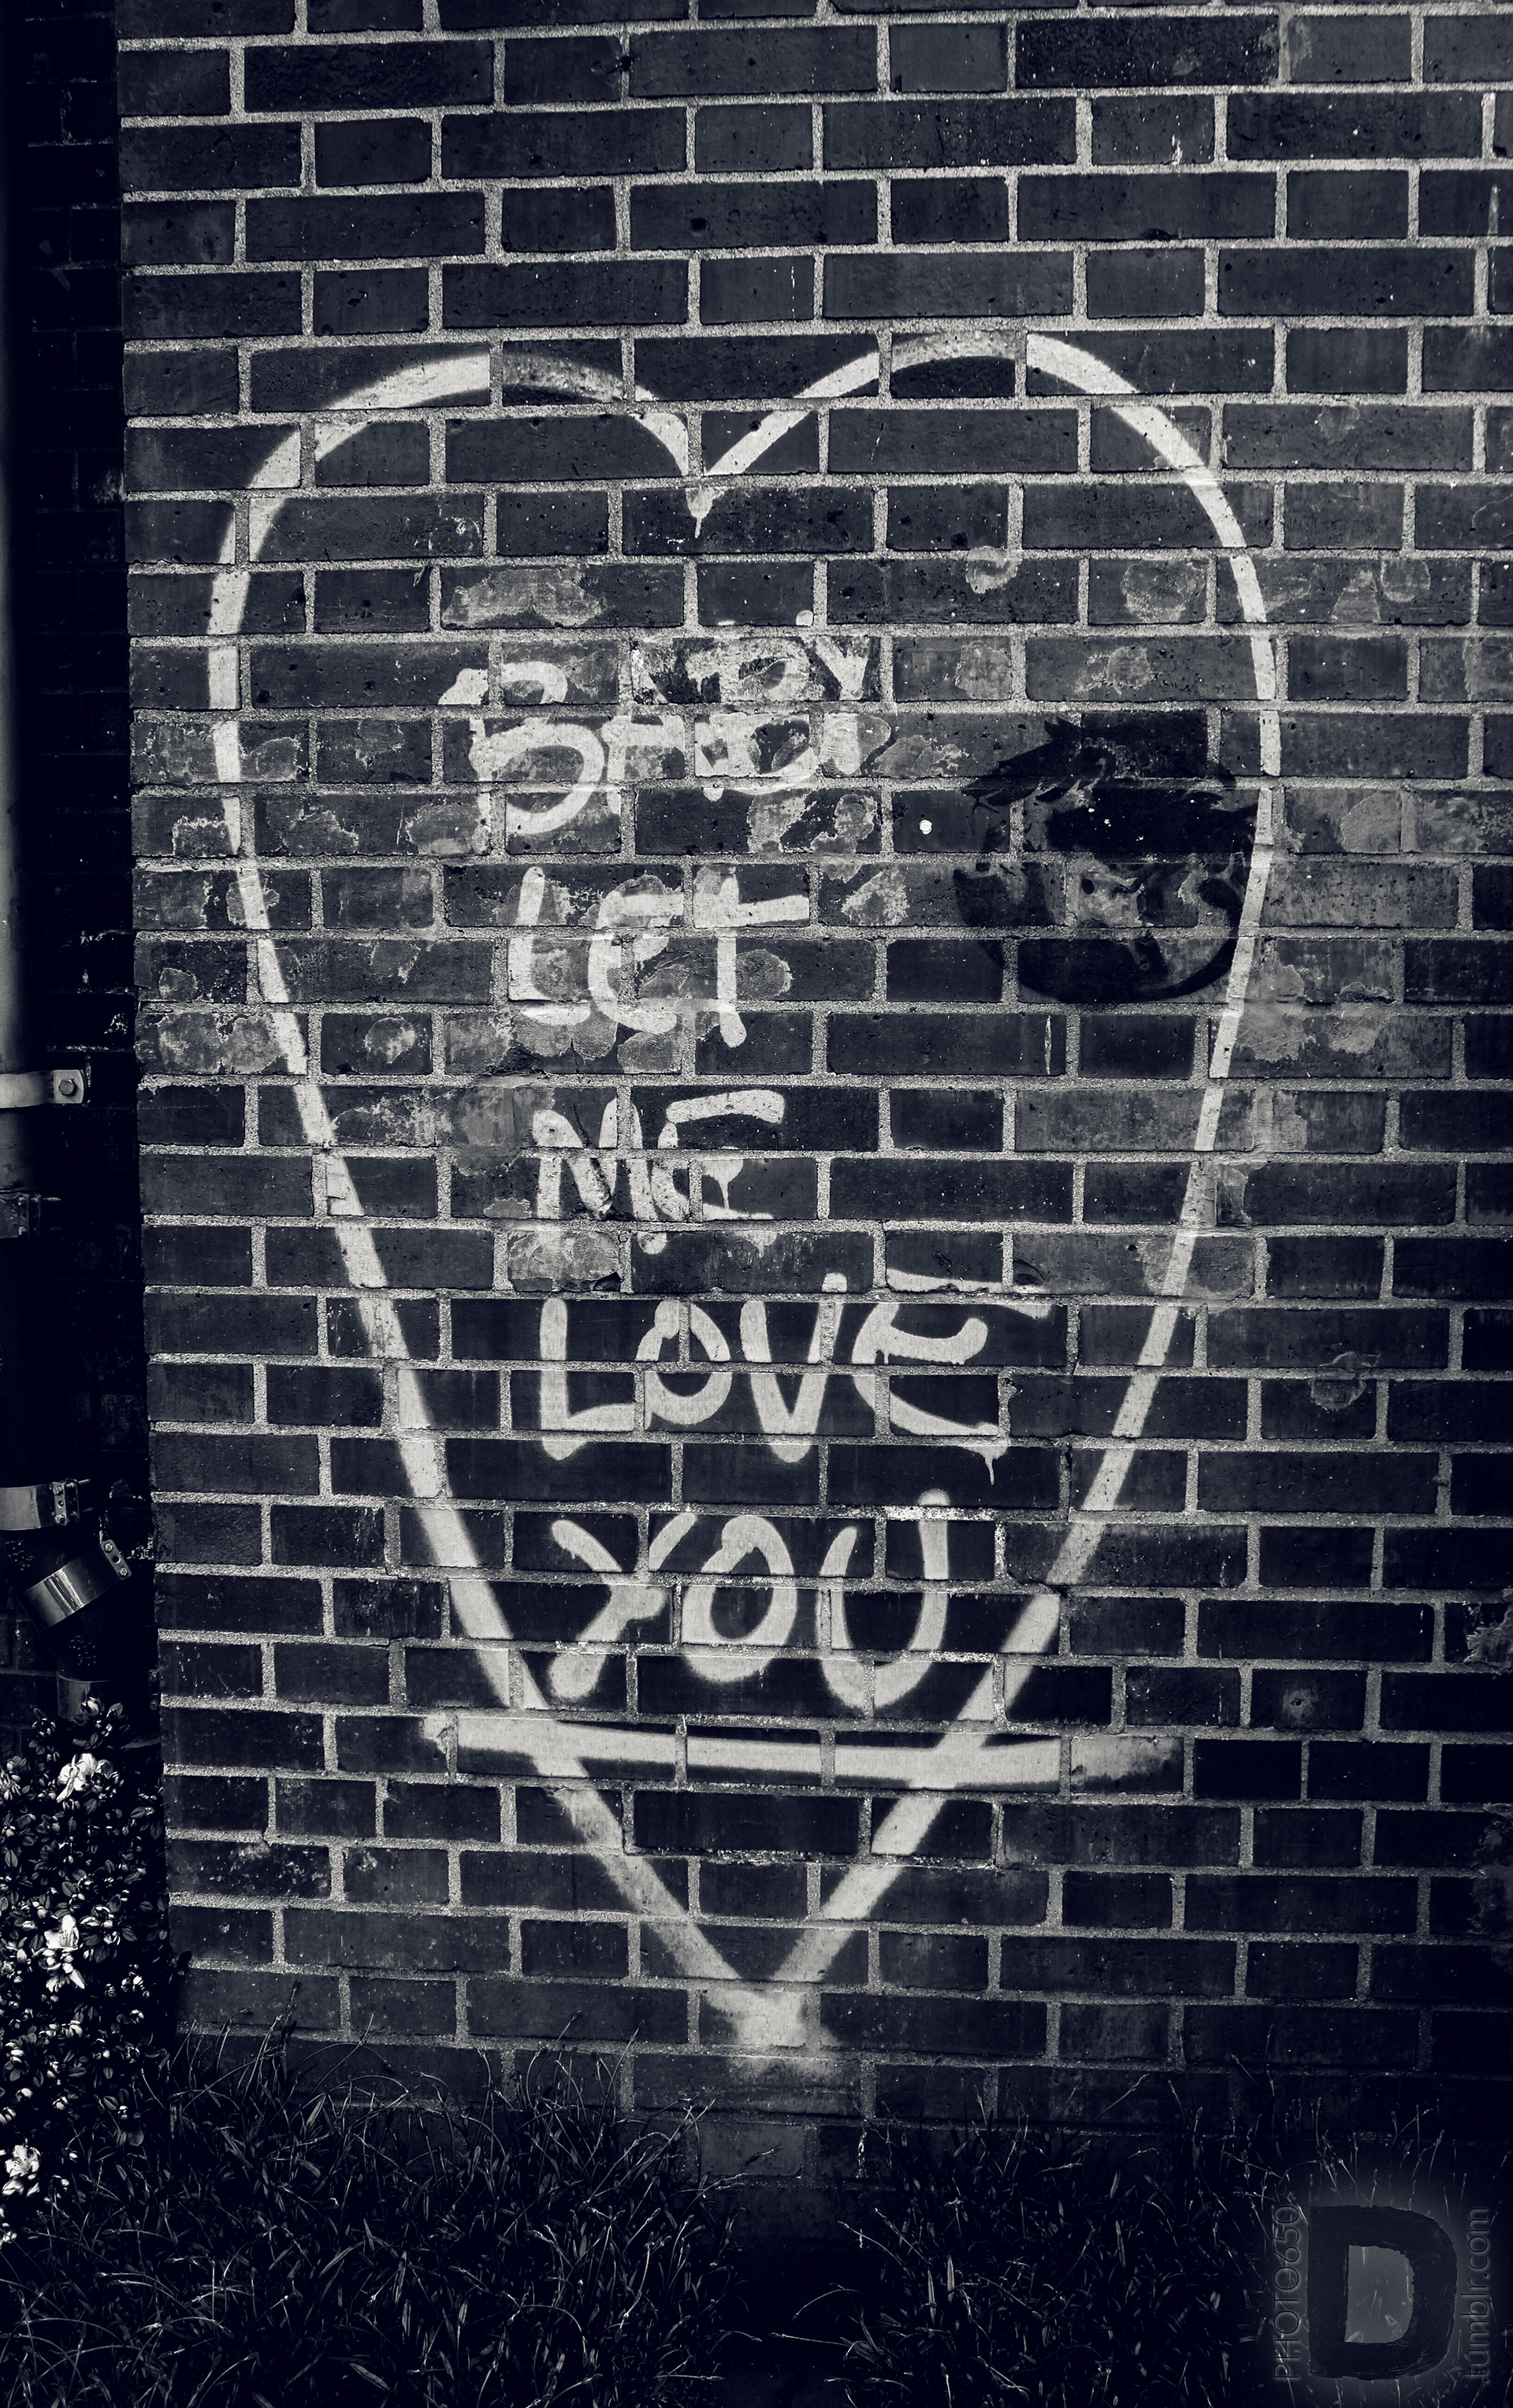 BABY
LET
ME
LOVE
YOU
PHOTO650
D
tumblr.com